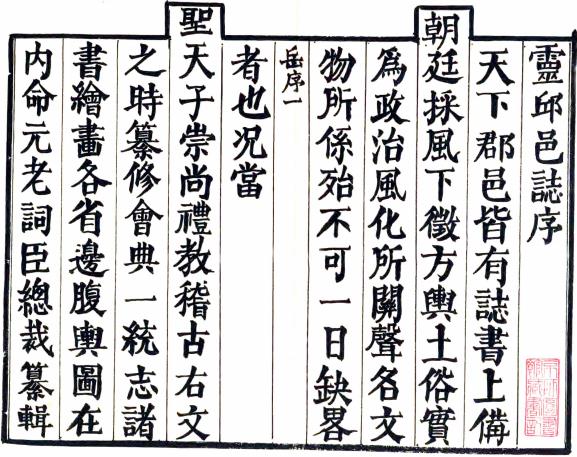 靈邱邑誌序
天下郡邑皆有誌書上備
朝廷採風下徵方輿土俗實
爲政治風化所關聲名文
物所係殆不可一日缺畧
岳序一
者也况當
聖天子崇尚禮教稽古右文
之時纂修會典一統志諸
書繪畫各省邊腹輿圖在
内命元老詞臣總裁纂輯